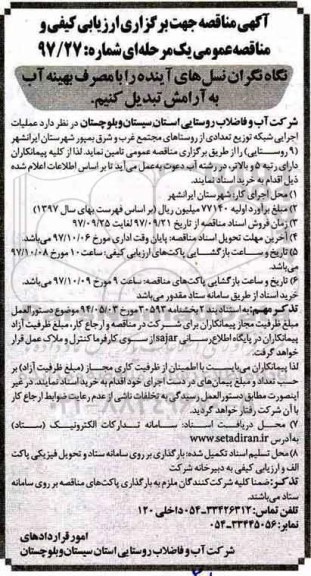 آگهی مناقصه جهت برگزاری ارزیابی کیفی و
مناقصه عمومی یک مرحله‌ای شماره: ۹۷/۲۷
نگاه نگران نسل‌های آینده را با مصرف بهینه آب
به آرامش تبدیل کنیم.
شرکت آب و فاضلاب روستایی استان سیستان و بلوچستان در نظر دارد عملیات
اجرایی شبکه توزیع تعدادی از روستاهای مجتمع غرب و شرق بمپور شهرستان ایرانشهر
(۹ روستایی) را از طریق برگزاری مناقصه عمومی تامین نماید. لذا از کلیه پیمانکاران
دارای رتبه ۵ و بالاتر، در رشته آب دعوت به عمل می‌آید تا بر اساس اطلاعات اعلام شده
ذیل اقدام به خرید اسناد نمایند.
۱) محل اجرای کار: شهرستان ایرانشهر
۲) مبلغ برآورد اولیه ۷۷۱۴۰ میلیون ریال (بر اساس فهرست بهای سال ۱۳۹۷)
۳) زمان فروش اسناد مناقصه از تاریخ ۹۷/۰۹/۲۱ لغایت ۹۷/۰۹/۲۵
۴) آخرین مهلت تحویل اسناد مناقصه: پایان وقت اداری مورخ ۹۷/۱۰/۰۶ می‌باشد.
۵) تاریخ و ساعت بازگشایی پاکت‌های ارزیابی کیفی: ساعت ۱۰ مورخ ۹۷/۱۰/۰۸
می‌باشد.
۶) تاریخ و ساعت بازگشایی پاکت‌های مناقصه: ساعت ۹ مورخ ۹۷/۱۰/۰۹ می‌باشد.
خرید اسناد از طریق سامانه ستاد مقدور می‌باشد.
تذکر مهم: به استناد بند ۲ بخشنامه ۲۰۵۹۳ مورخ ۹۴/۰۵/۰۳ موضوع دستورالعمل
مبلغ ظرفیت مجاز پیمانکاران برای شرکت در مناقصه و ارجاع کار، مبلغ ظرفیت آزاد
پیمانکاران در پایگاه اطلاع رسانی sajar از سوی کارفرما کنترل و ملاک عمل قرار
خواهد گرفت.
لذا پیمانکاران می‌بایست با اطمینان از ظرفیت کاری مجاز (مبلغ ظرفیت آزاد) بر
حسب تعداد و مبلغ پیمان‌های در دست اجرای خود اقدام به خرید اسناد نمایند. در غیر
اینصورت مطابق دستورالعمل رسیدگی به تخلفات ناشی از عدم رعایت ضوابط ارجاع کار
با آن شرکت رفتار خواهد گردید.
۷) محل دریافت اسناد: سامانه تدارکات الکترونیک (ستاد)
به آدرس www.setadiran.ir
۸) محل تسلیم اسناد تکمیل شده: بارگذاری بر روی سامانه ستاد و تحویل فیزیکی پاکت
الف و ارزیابی کیفی به دبیرخانه شرکت
تذکر: ضمنا کلیه شرکت کنندگان ملزم به بارگذاری پاکت‌های مناقصه بر روی سامانه
ستاد می‌باشند.
تلفن تماس: ۳۳۴۲۶۳۱۲-۰۵۴ داخلی ۱۲۰
نمابر: ۳۳۴۴۵۰۵۶-۰۵۴
امور قراردادهای
شرکت آب و فاضلاب روستایی استان سیستان و بلوچستان